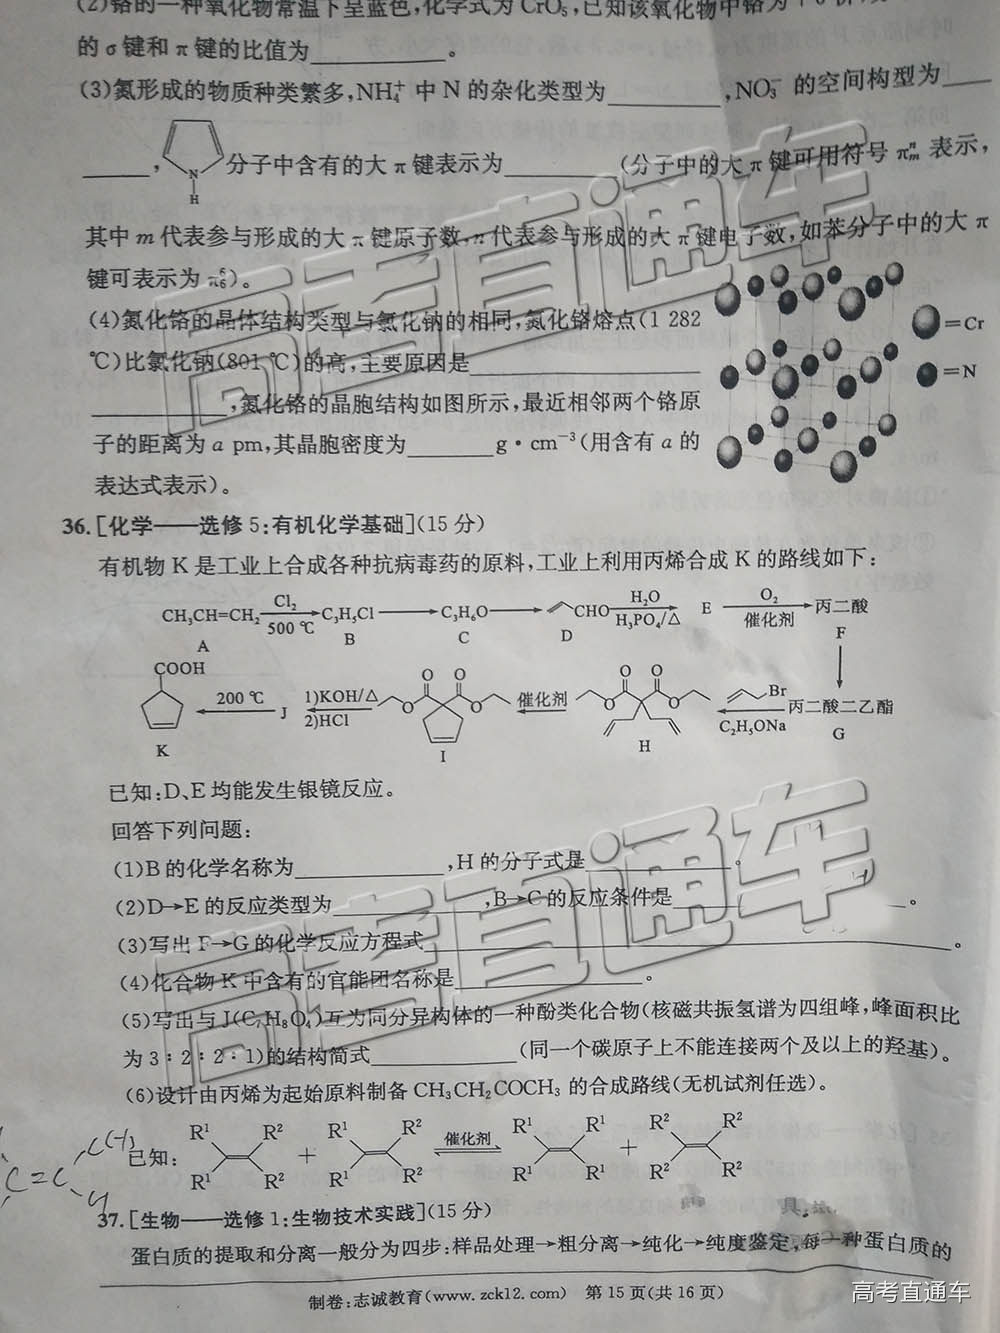 (2)铬的一种氧化物常温下呈蓝色,化学式为CrO₅,已知该氧化物中铬为+6价,
的σ键和π键的比值为________。
(3)氮形成的物质种类繁多,NH₄⁺中N的杂化类型为________,NO₃⁻的空间构型为___
_____,
N
H
分子中含有的大π键表示为________(分子中的大π键可用符号πₘⁿ表示,
其中m代表参与形成的大π键原子数,n代表参与形成的大π键电子数,如苯分子中的大π
键可表示为π₆⁶)。
(4)氮化铬的晶体结构类型与氯化钠的相同,氮化铬熔点(1 282
℃)比氯化钠(801 ℃)的高,主要原因是________
________,氮化铬的晶胞结构如图所示,最近相邻两个铬原
子的距离为a pm,其晶胞密度为______g·cm⁻³(用含有a的
表达式表示)。
=Cr
=N
36.[化学——选修5:有机化学基础](15分)
有机物K是工业上合成各种抗病毒药的原料,工业上利用丙烯合成K的路线如下:
CH₃CH=CH₂ Cl₂ 500 ℃ C₃H₅Cl C₃H₆O CHO H₂O H₃PO₄/△ E O₂ 催化剂 丙二酸
A B C D F
COOH 200 ℃ J 1)KOH/△ 2)HCl O O O O 催化剂 O O O O Br C₂H₅ONa 丙二酸二乙酯
K I H G
已知:D、E均能发生银镜反应。
回答下列问题:
(1)B的化学名称为________,H的分子式是________。
(2)D→E的反应类型为________,B→C的反应条件是________。
(3)写出F→G的化学反应方程式________。
(4)化合物K中含有的官能团名称是________。
(5)写出与J(C₇H₈O₄)互为同分异构体的一种酚类化合物(核磁共振氢谱为四组峰,峰面积比
为3∶2∶2∶1)的结构简式________(同一个碳原子上不能连接两个及以上的羟基)。
(6)设计由丙烯为起始原料制备CH₃CH₂COCH₃的合成路线(无机试剂任选)。
已知: R¹ R² R¹ R² + R¹ R² R¹ R² 催化剂 R¹ R¹ R¹ R¹ + R² R² R² R²
C=C
37.[生物——选修1:生物技术实践](15分)
蛋白质的提取和分离一般分为四步:样品处理→粗分离→纯化→纯度鉴定,每一种蛋白质的
制卷:志诚教育(www.zck12.com) 第15页(共16页)
高考直通车
高考直通车
高考直通车